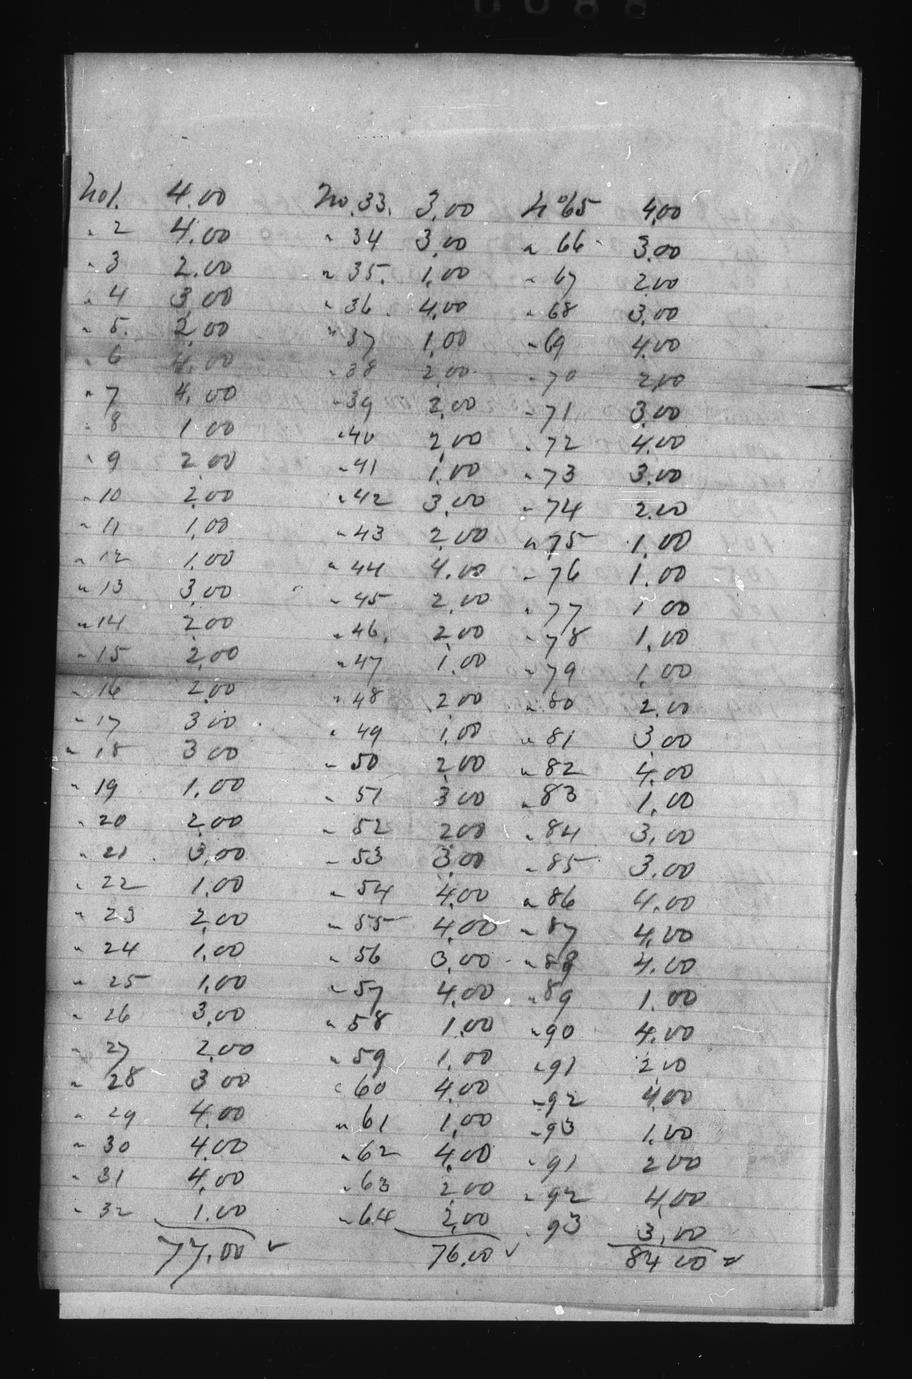 No 1. 4.00 No. 33. 3.00 No 65 4.00
" 2 4.00 " 34 3.00 " 66 3.00
" 3 2.00 " 35. 1.00 " 67 2.00
" 4 3.00 " 36 4.00 " 68 3.00
" 5. 2.00 " 37 1.00 " 69 4.00
" 6 4.00 " 38 2.00 " 70 2.00
" 7 4.00 " 39 2.00 " 71 3.00
" 8 1.00 " 40 2.00 " 72 4.00
" 9 2.00 " 41 1.00 " 73 3.00
" 10 2.00 " 42 3.00 " 74 2.00
" 11 1.00 " 43 2.00 " 75 1.00
" 12 1.00 " 44 4.00 " 76 1.00
" 13 3.00 " 45 2.00 " 77 1.00
" 14 2.00 " 46. 2.00 " 78 1.00
" 15 2.00 " 47 1.00 " 79 1.00
" 16 2.00 " 48 2.00 " 80 2.00
" 17 3.00 " 49 1.00 " 81 3.00
" 18 3.00 " 50 2.00 " 82 4.00
" 19 1.00 " 51 3.00 " 83 1.00
" 20 2.00 " 52 2.00 " 84 3.00
" 21 3.00 " 53 3.00 " 85 3.00
" 22 1.00 " 54 4.00 " 86 4.00
" 23 2.00 " 55 4.00 " 87 4.00
" 24 1.00 " 56 3.00 " 88 4.00
" 25 1.00 " 57 4.00 " 89 1.00
" 26 3.00 " 58 1.00 " 90 4.00
" 27 2.00 " 59 1.00 " 91 2.00
" 28 3.00 " 60 4.00 " 92 4.00
" 29 4.00 " 61 1.00 " 93 1.00
" 30 4.00 " 62 4.00 " 91 2.00
" 31 4.00 " 63 2.00 " 92 4.00
" 32 1.00 " 64 2.00 " 93 3.00
77.00 ✓ 76.00 ✓ 84.00 ✓